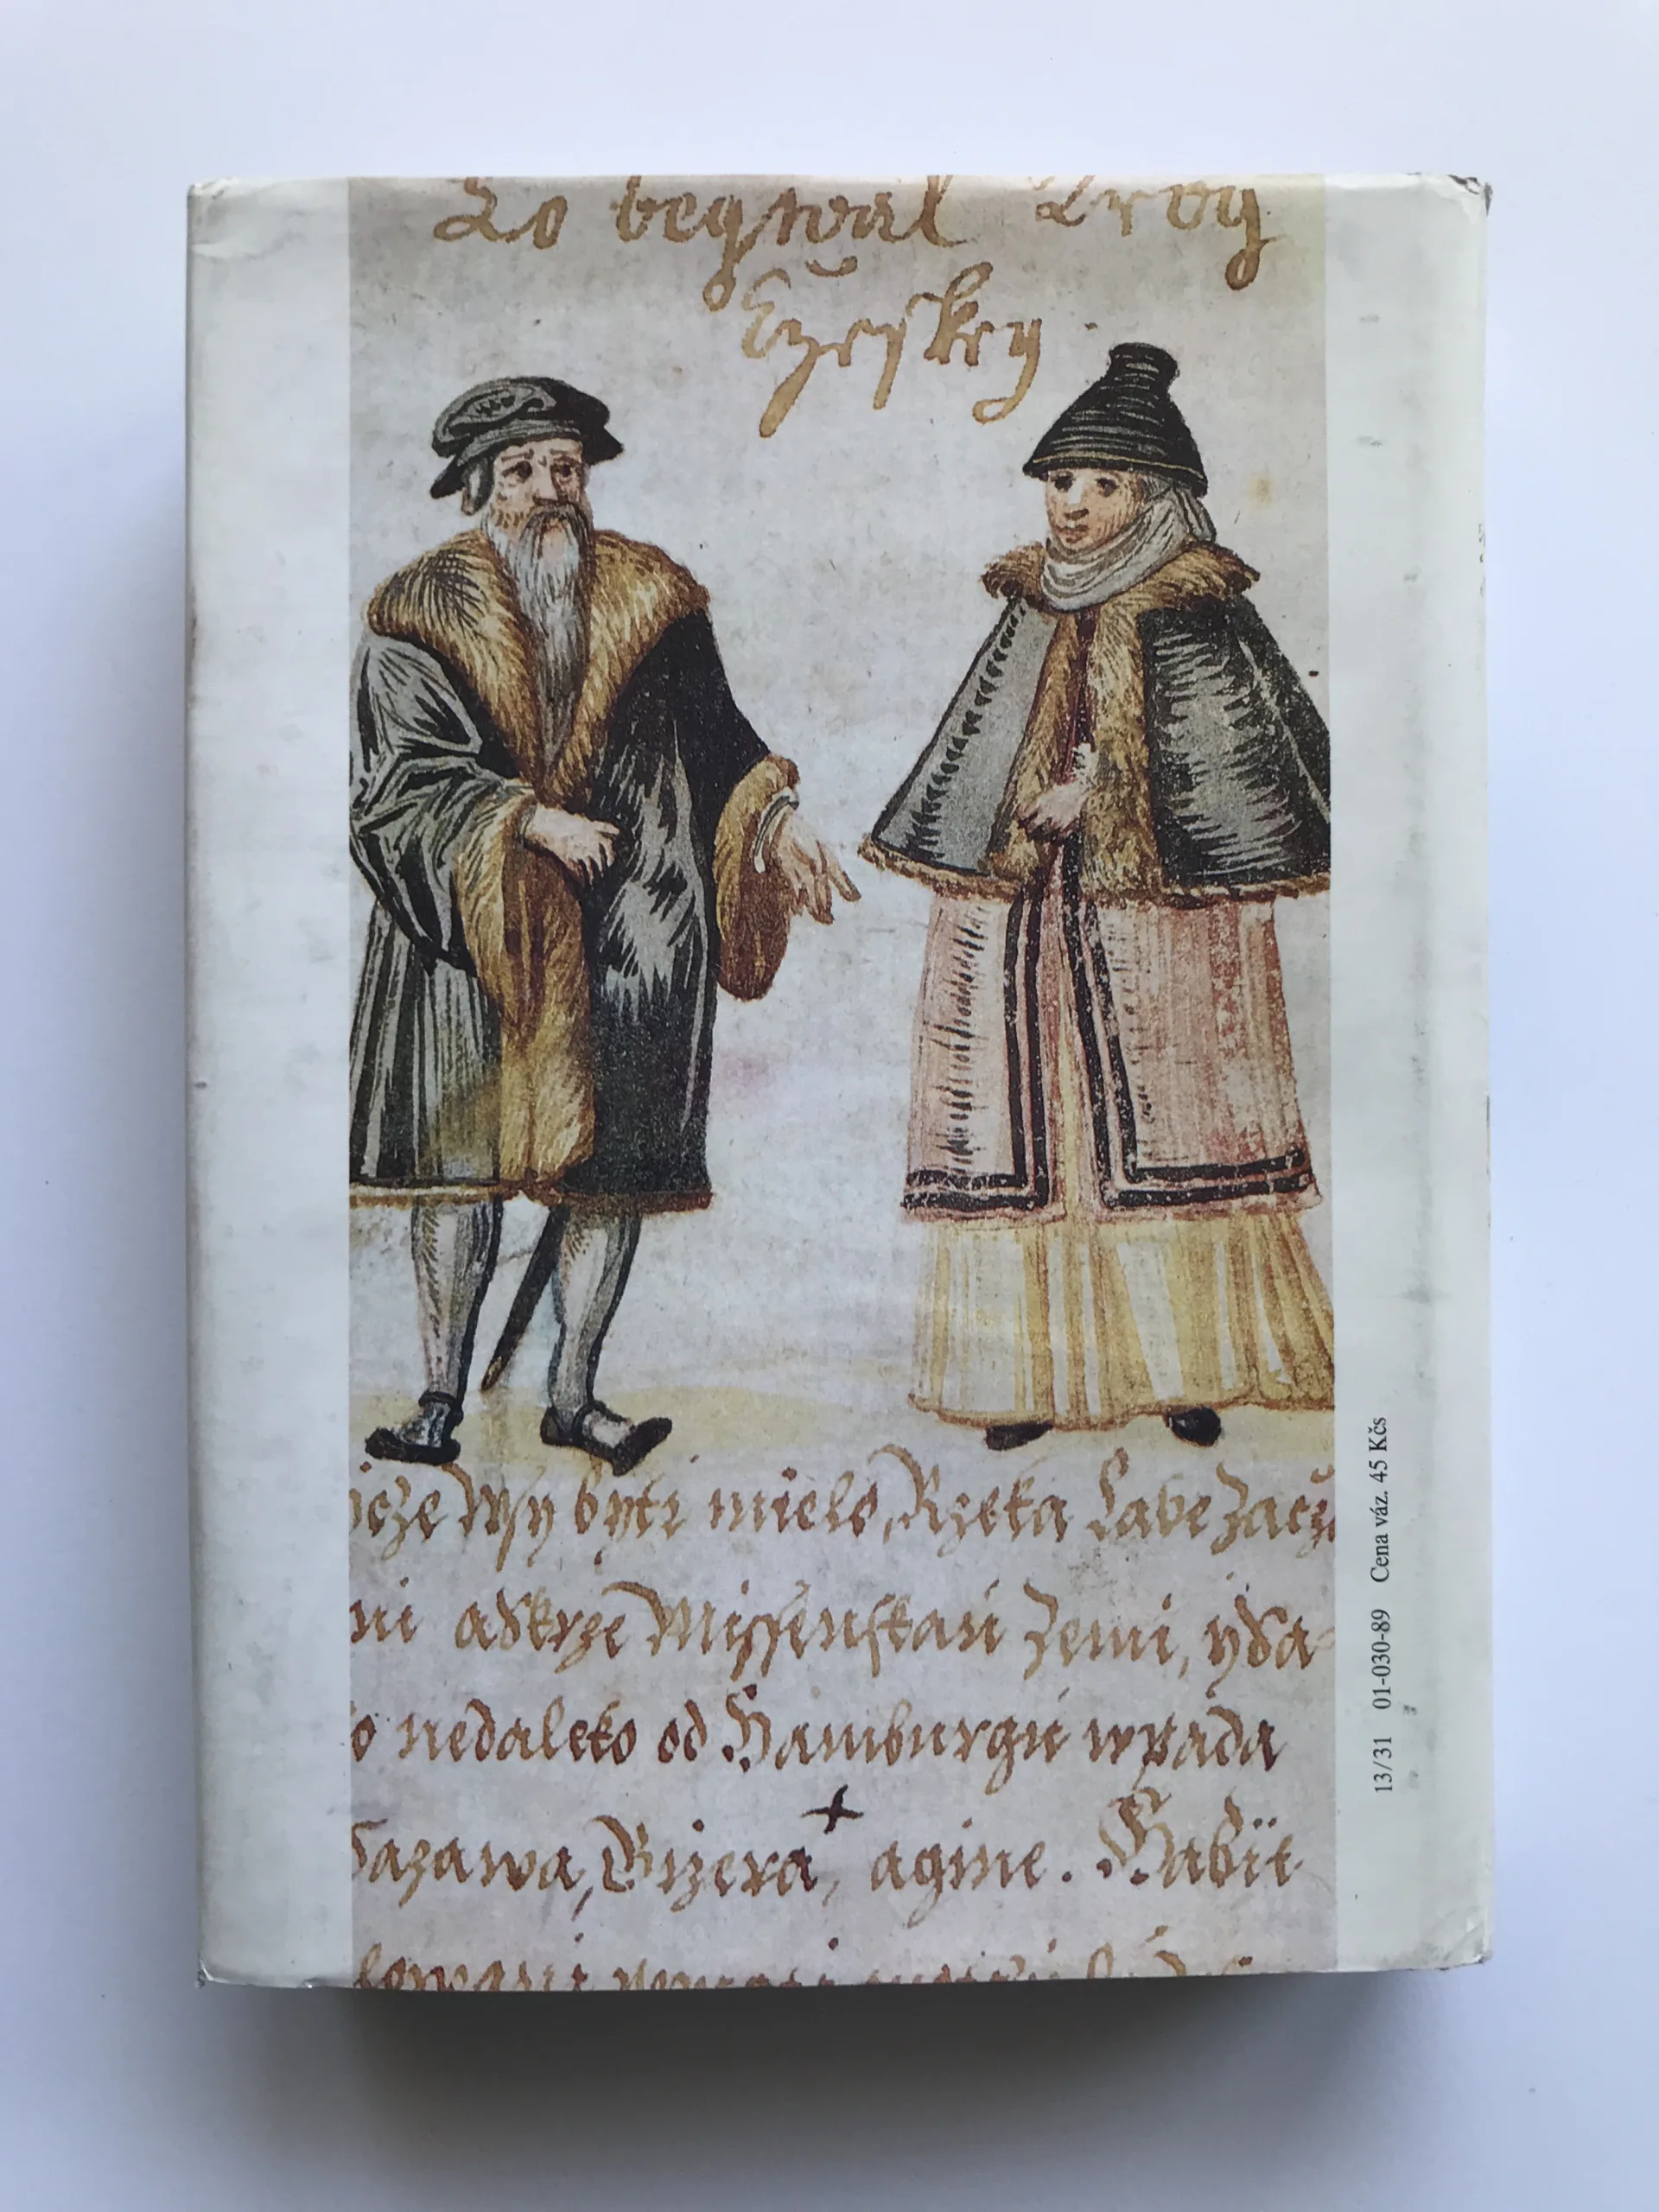 To begwal Kroy
Czesky
icze wsy byti mielo, Rzeka Labe Zacz
ni a Skrze Missenskau Zemi, y Sa-
o nedaleko od Hamburgu wpada
Sazawa, Gizera, a gine. Habit
13/31 01-030-89 Cena váz. 45 Kčs